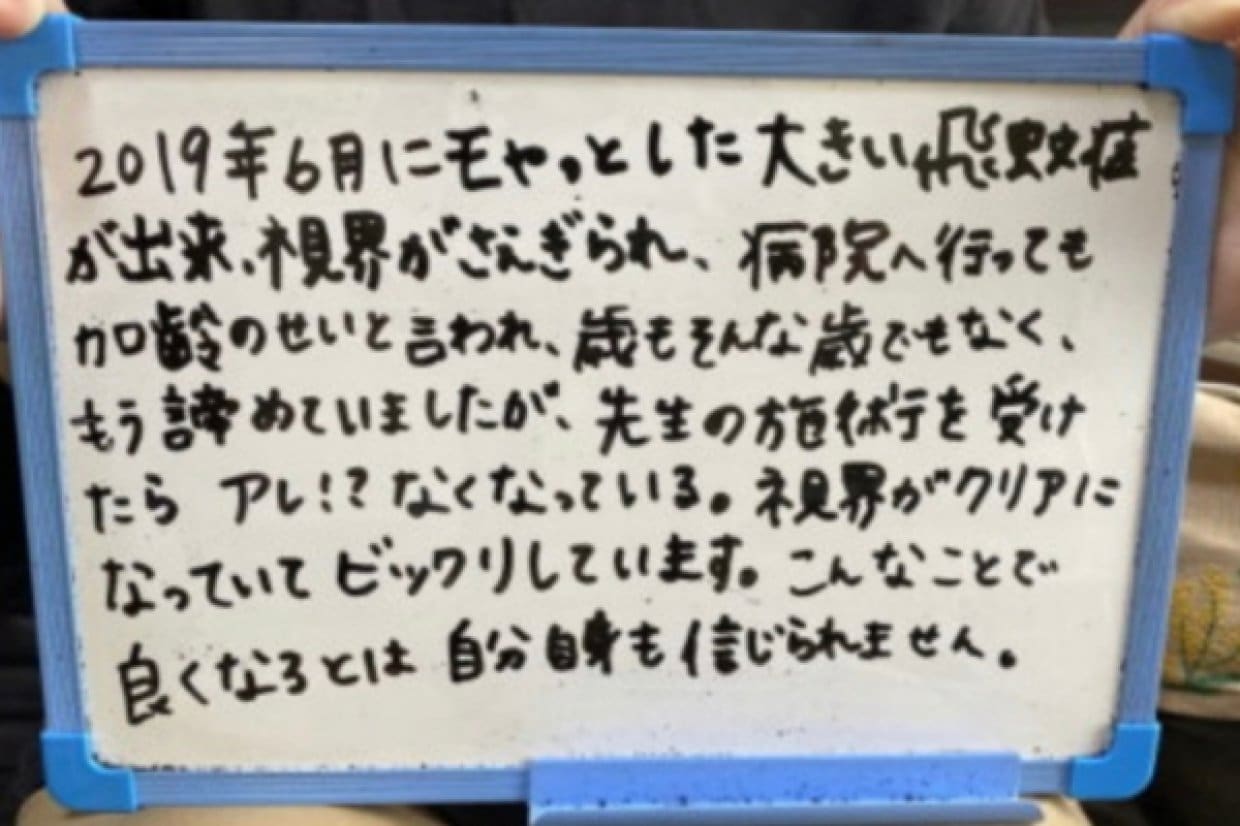 2019年6月にモヤっとした大きい飛蚊症
が出来、視界がさえぎられ、病院へ行っても
加齢のせいと言われ、歳もそんな歳でもなく、
もう諦めていましたが、先生の施術を受け
たら アレ!?なくなっている。視界がクリアに
なっていてビックリしています。こんなことで
良くなるとは 自分自身も信じられません。